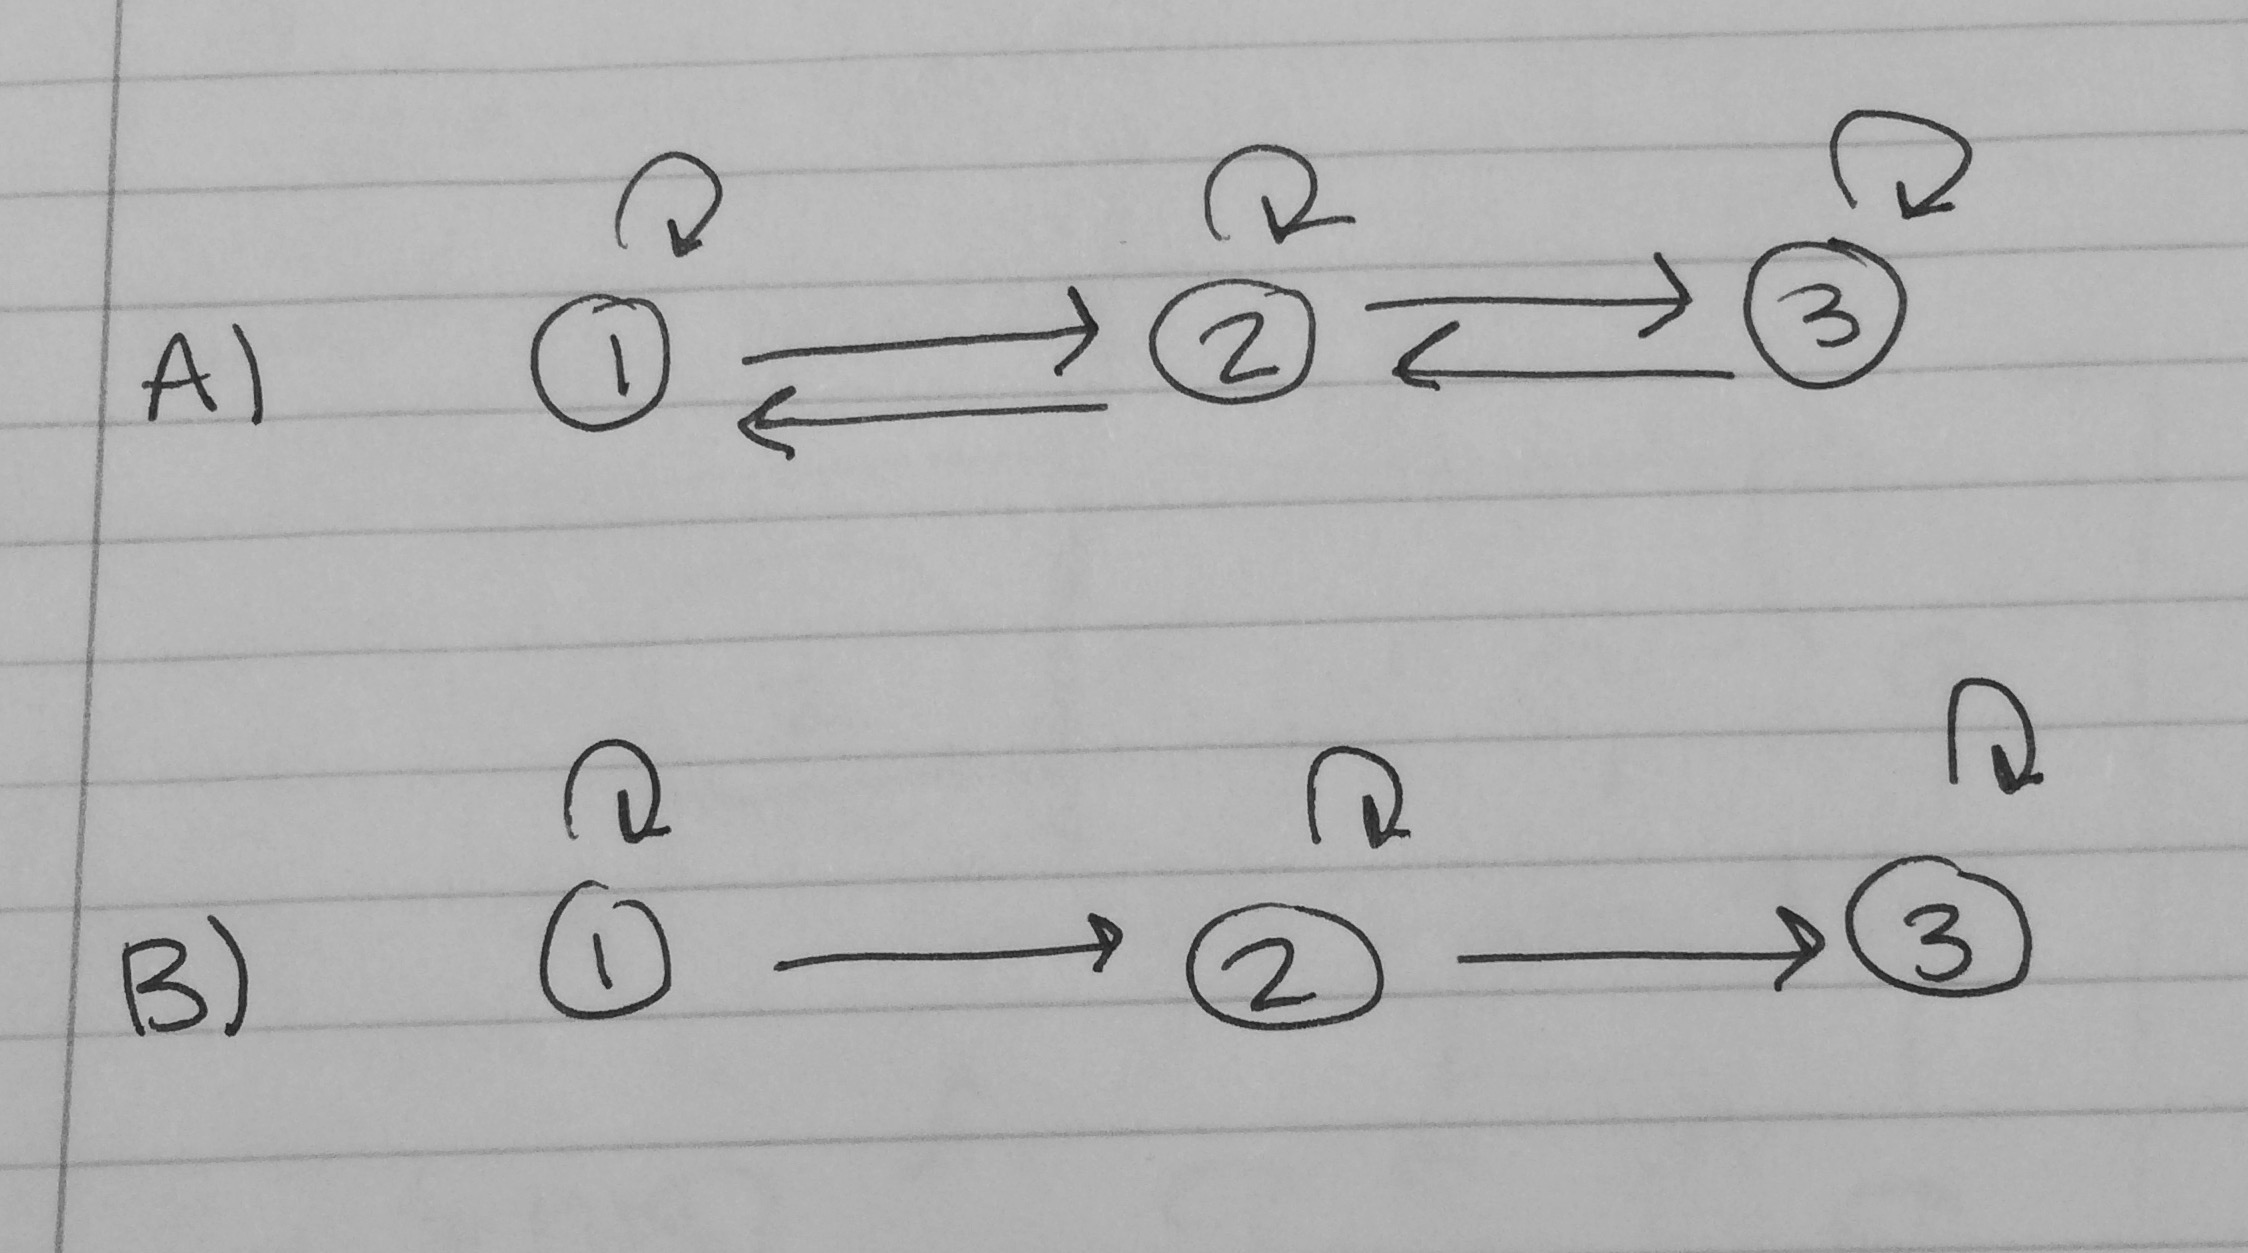 A) 1 2 3
B) 1 2 3